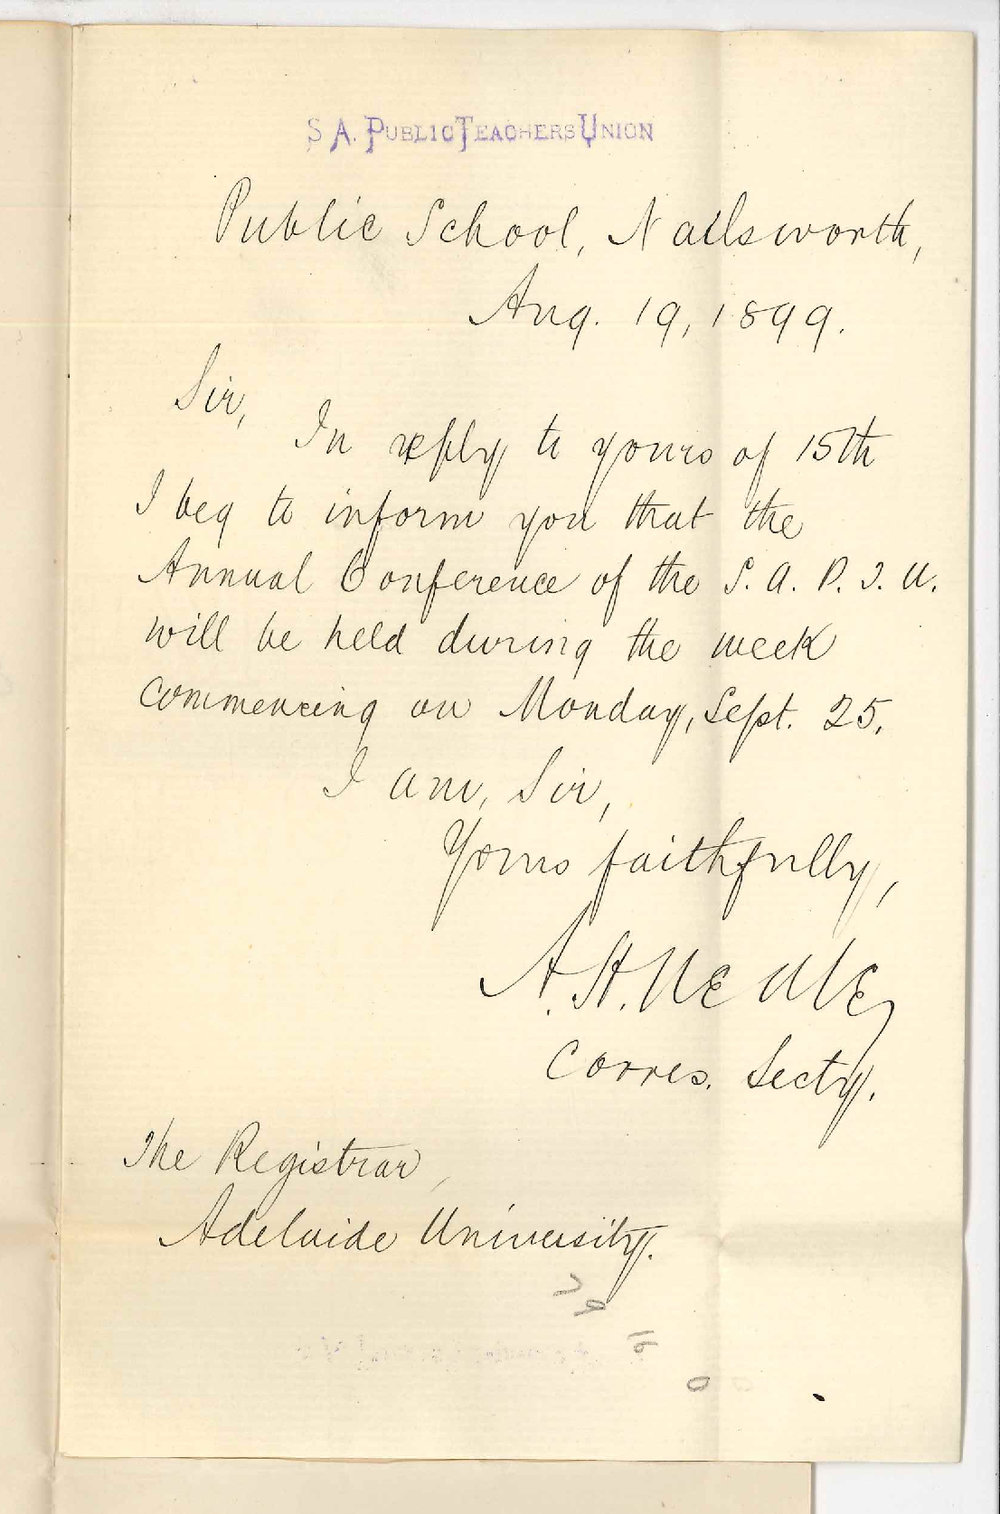 S. A. PUBLIC TEACHERS UNION
Public School, Nailsworth,
Aug. 19, 1899.
Sir,
In reply to yours of 15th
I beg to inform you that the
Annual Conference of the S. A. P. T. U.
will be held during the week
commencing on Monday, Sept. 25.
I am, Sir,
Yours faithfully,
A. H. Neale,
Corres. Secty.
The Registrar,
Adelaide University.